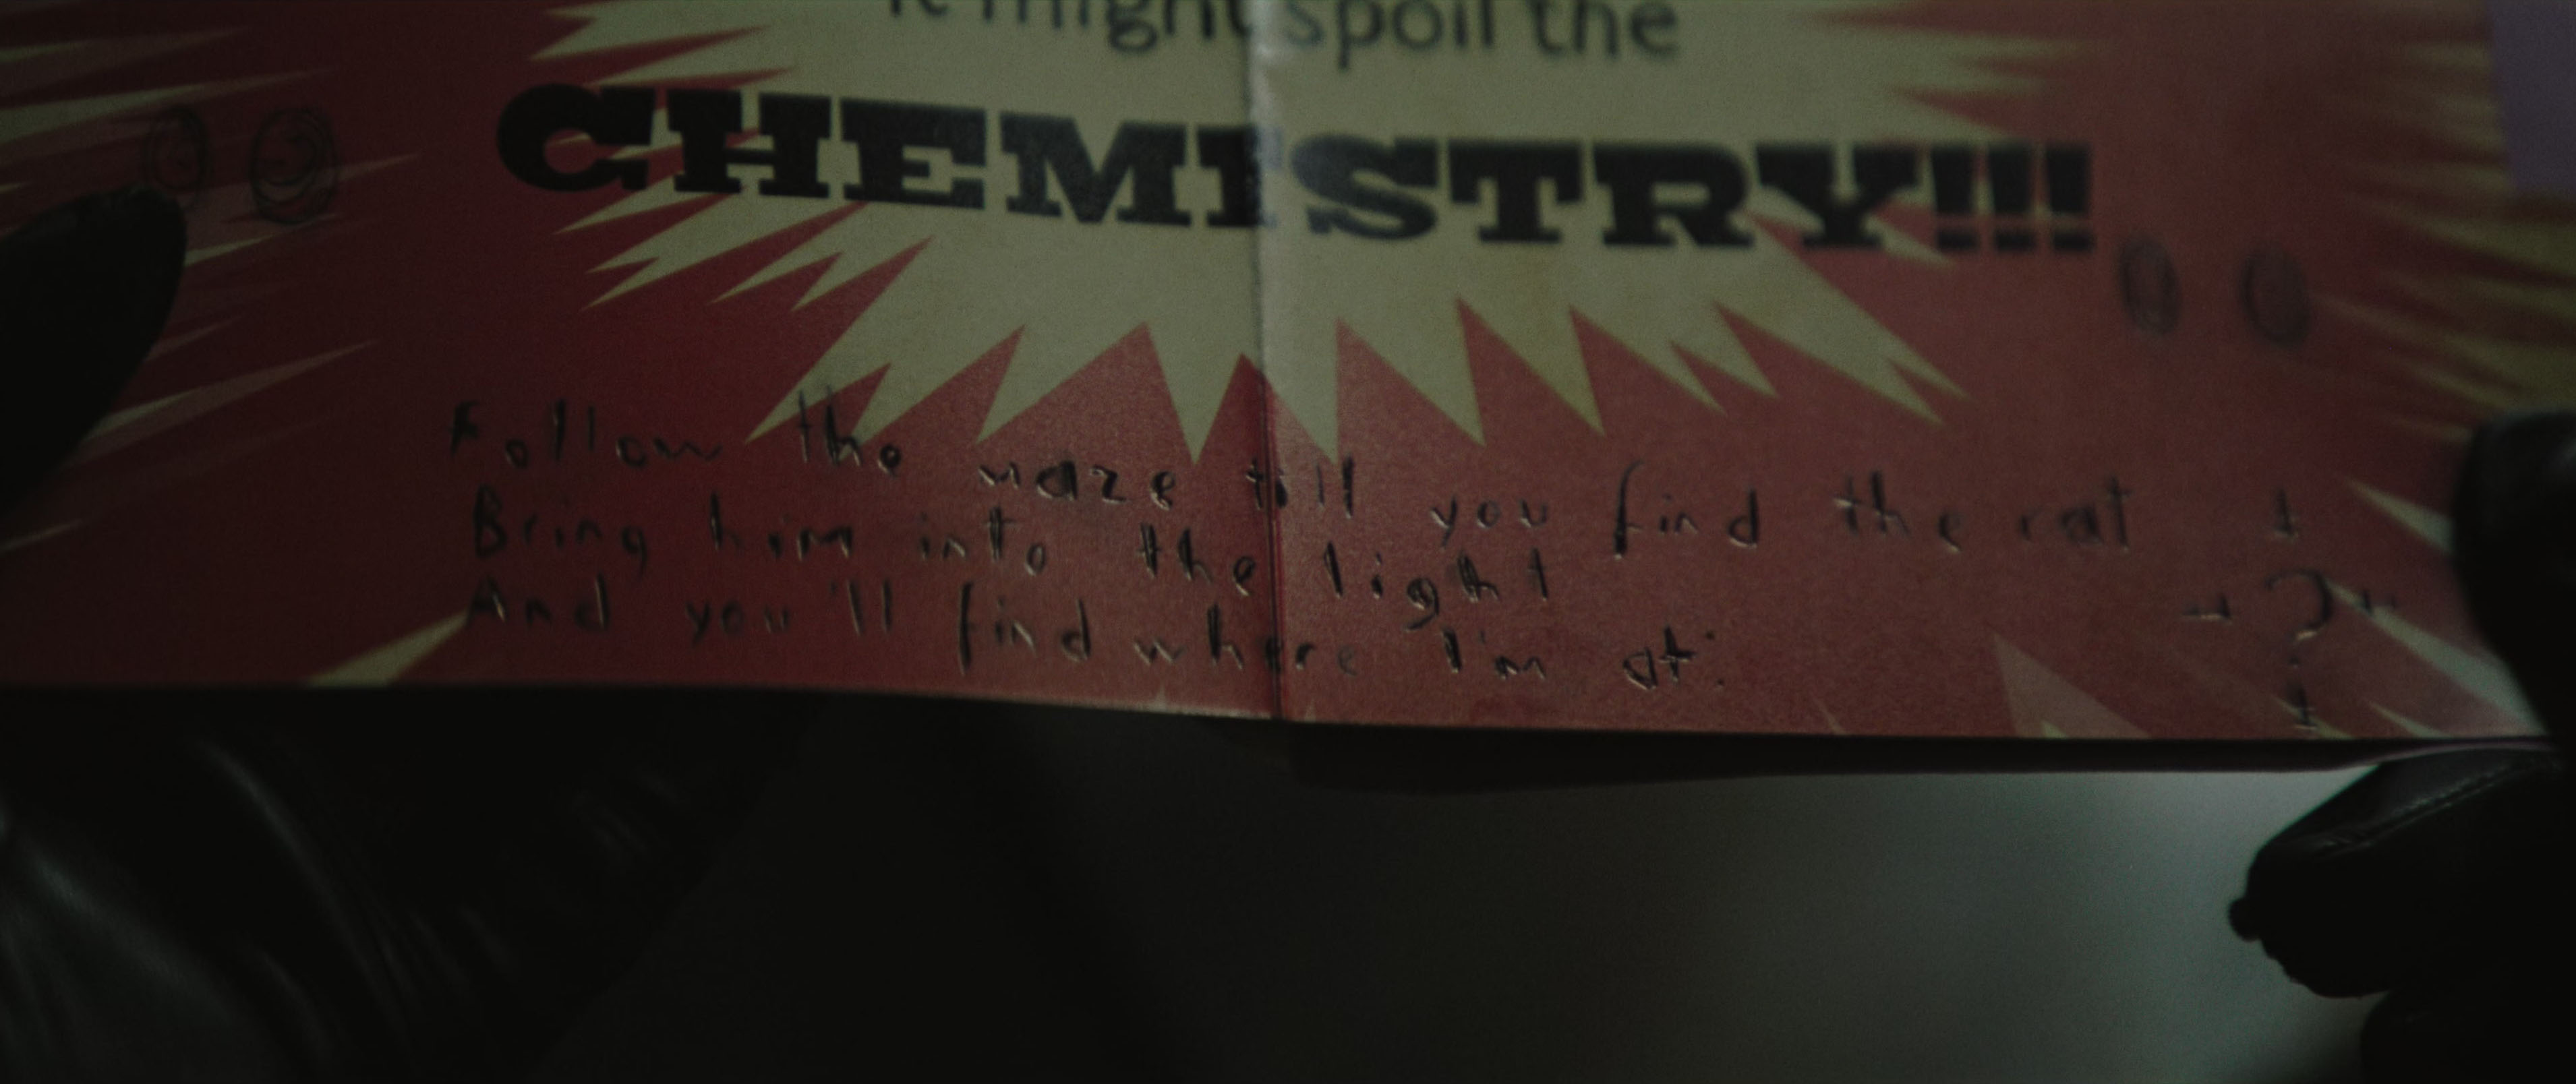 it might spoil the
CHEMISTRY!!!
Follow the maze till you find the rat
Bring him into the light
And you'll find where I'm at.
?